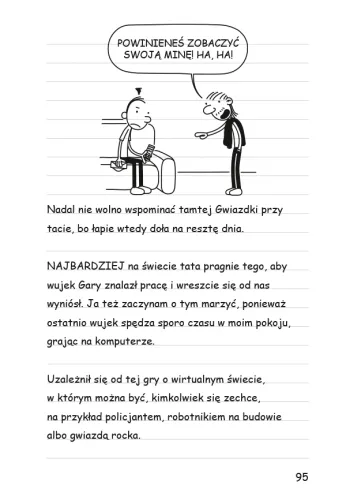 POWINIENEŚ ZOBACZYĆ
SWOJĄ MINĘ! HA, HA!
Nadal nie wolno wspominać tamtej Gwiazdki przy
tacie, bo łapie wtedy doła na resztę dnia.
NAJBARDZIEJ na świecie tata pragnie tego, aby
wujek Gary znalazł pracę i wreszcie się od nas
wyniósł. Ja też zaczynam o tym marzyć, ponieważ
ostatnio wujek spędza sporo czasu w moim pokoju,
grając na komputerze.
Uzależnił się od tej gry o wirtualnym świecie,
w którym można być, kimkolwiek się zechce,
na przykład policjantem, robotnikiem na budowie
albo gwiazdą rocka.
95